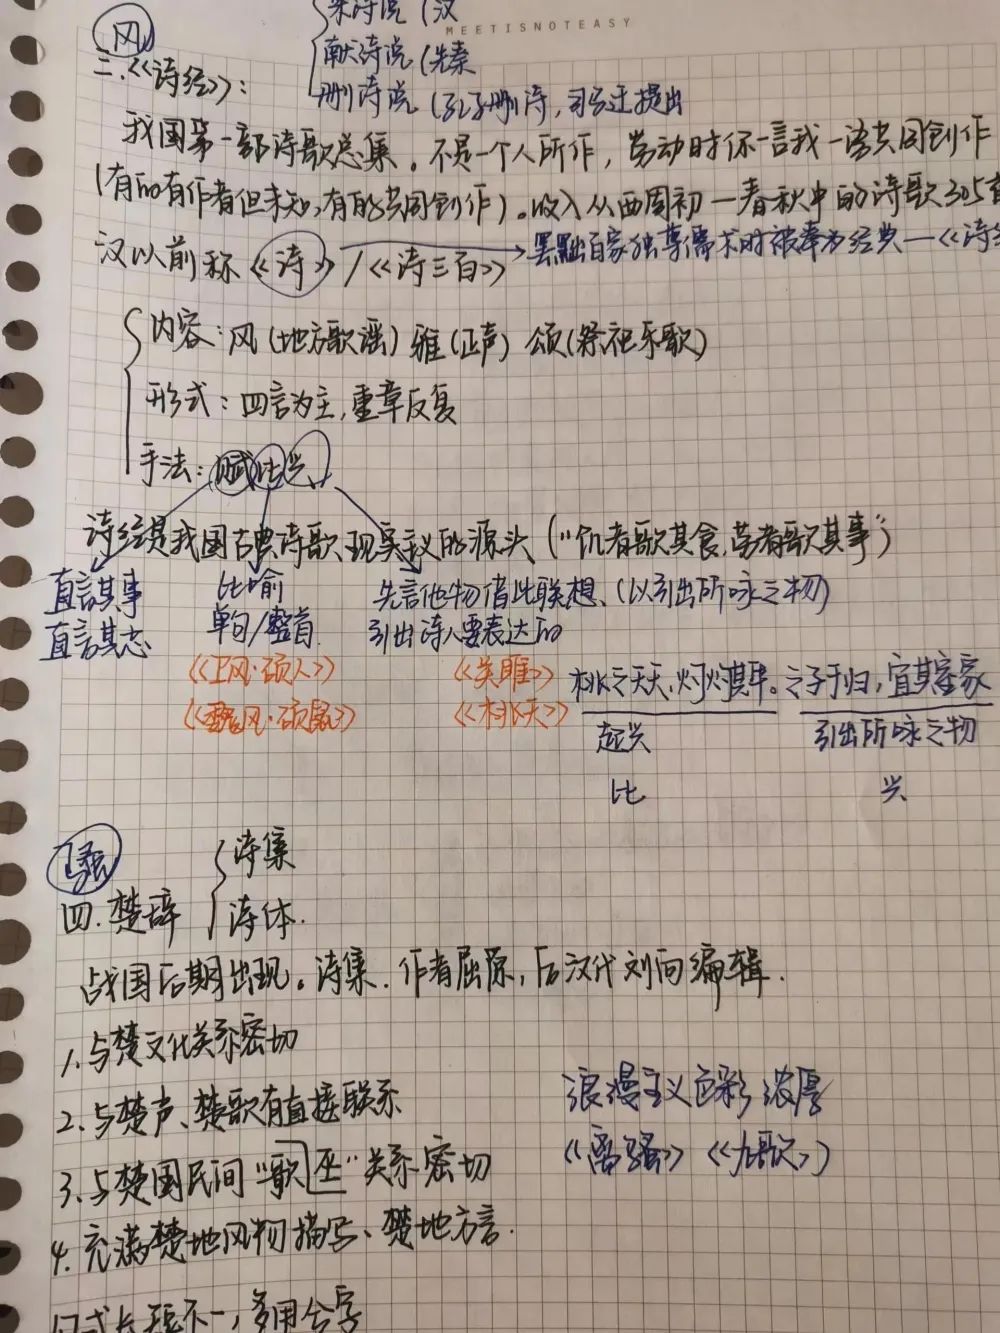 采诗说（汉
MEETISNOTEASY
献诗说（先秦
删诗说（孔子删诗，司马迁提出
风
二.《诗经》：
我国第一部诗歌总集。不是一个人所作，劳动时你一言我一语共同创作
（有的有作者但未知，有的共同创作）。收入从西周初—春秋中的诗歌305
汉以前称《诗》/《诗三百》→罢黜百家独尊儒术时被奉为经典—《诗
内容：风（地方歌谣）雅（正声）颂（祭祀乐歌）
形式：四言为主，重章反复
手法：赋比兴
诗经是我国古典诗歌现实主义的源头（“饥者歌其食，劳者歌其事”）
直言其事 比喻 先言他物借此联想、（以引出所咏之物）
直言其志 单句/整首 引出诗人要表达的
《卫风·硕人》 《关雎》 桃之夭夭，灼灼其华。之子于归，宜其室家
《魏风·硕鼠》 《桃夭》 起兴 引出所咏之物
比 兴
骚
四.楚辞 诗集
诗体.
战国后期出现。诗集.作者屈原，后汉代刘向编辑.
1.与楚文化关系密切
2.与楚声、楚歌有直接联系 浪漫主义色彩浓厚
3.与楚国民间“歌巫”关系密切 《离骚》《九歌》
4.充满楚地风物描写、楚地方言.
句式长短不一，多用兮字